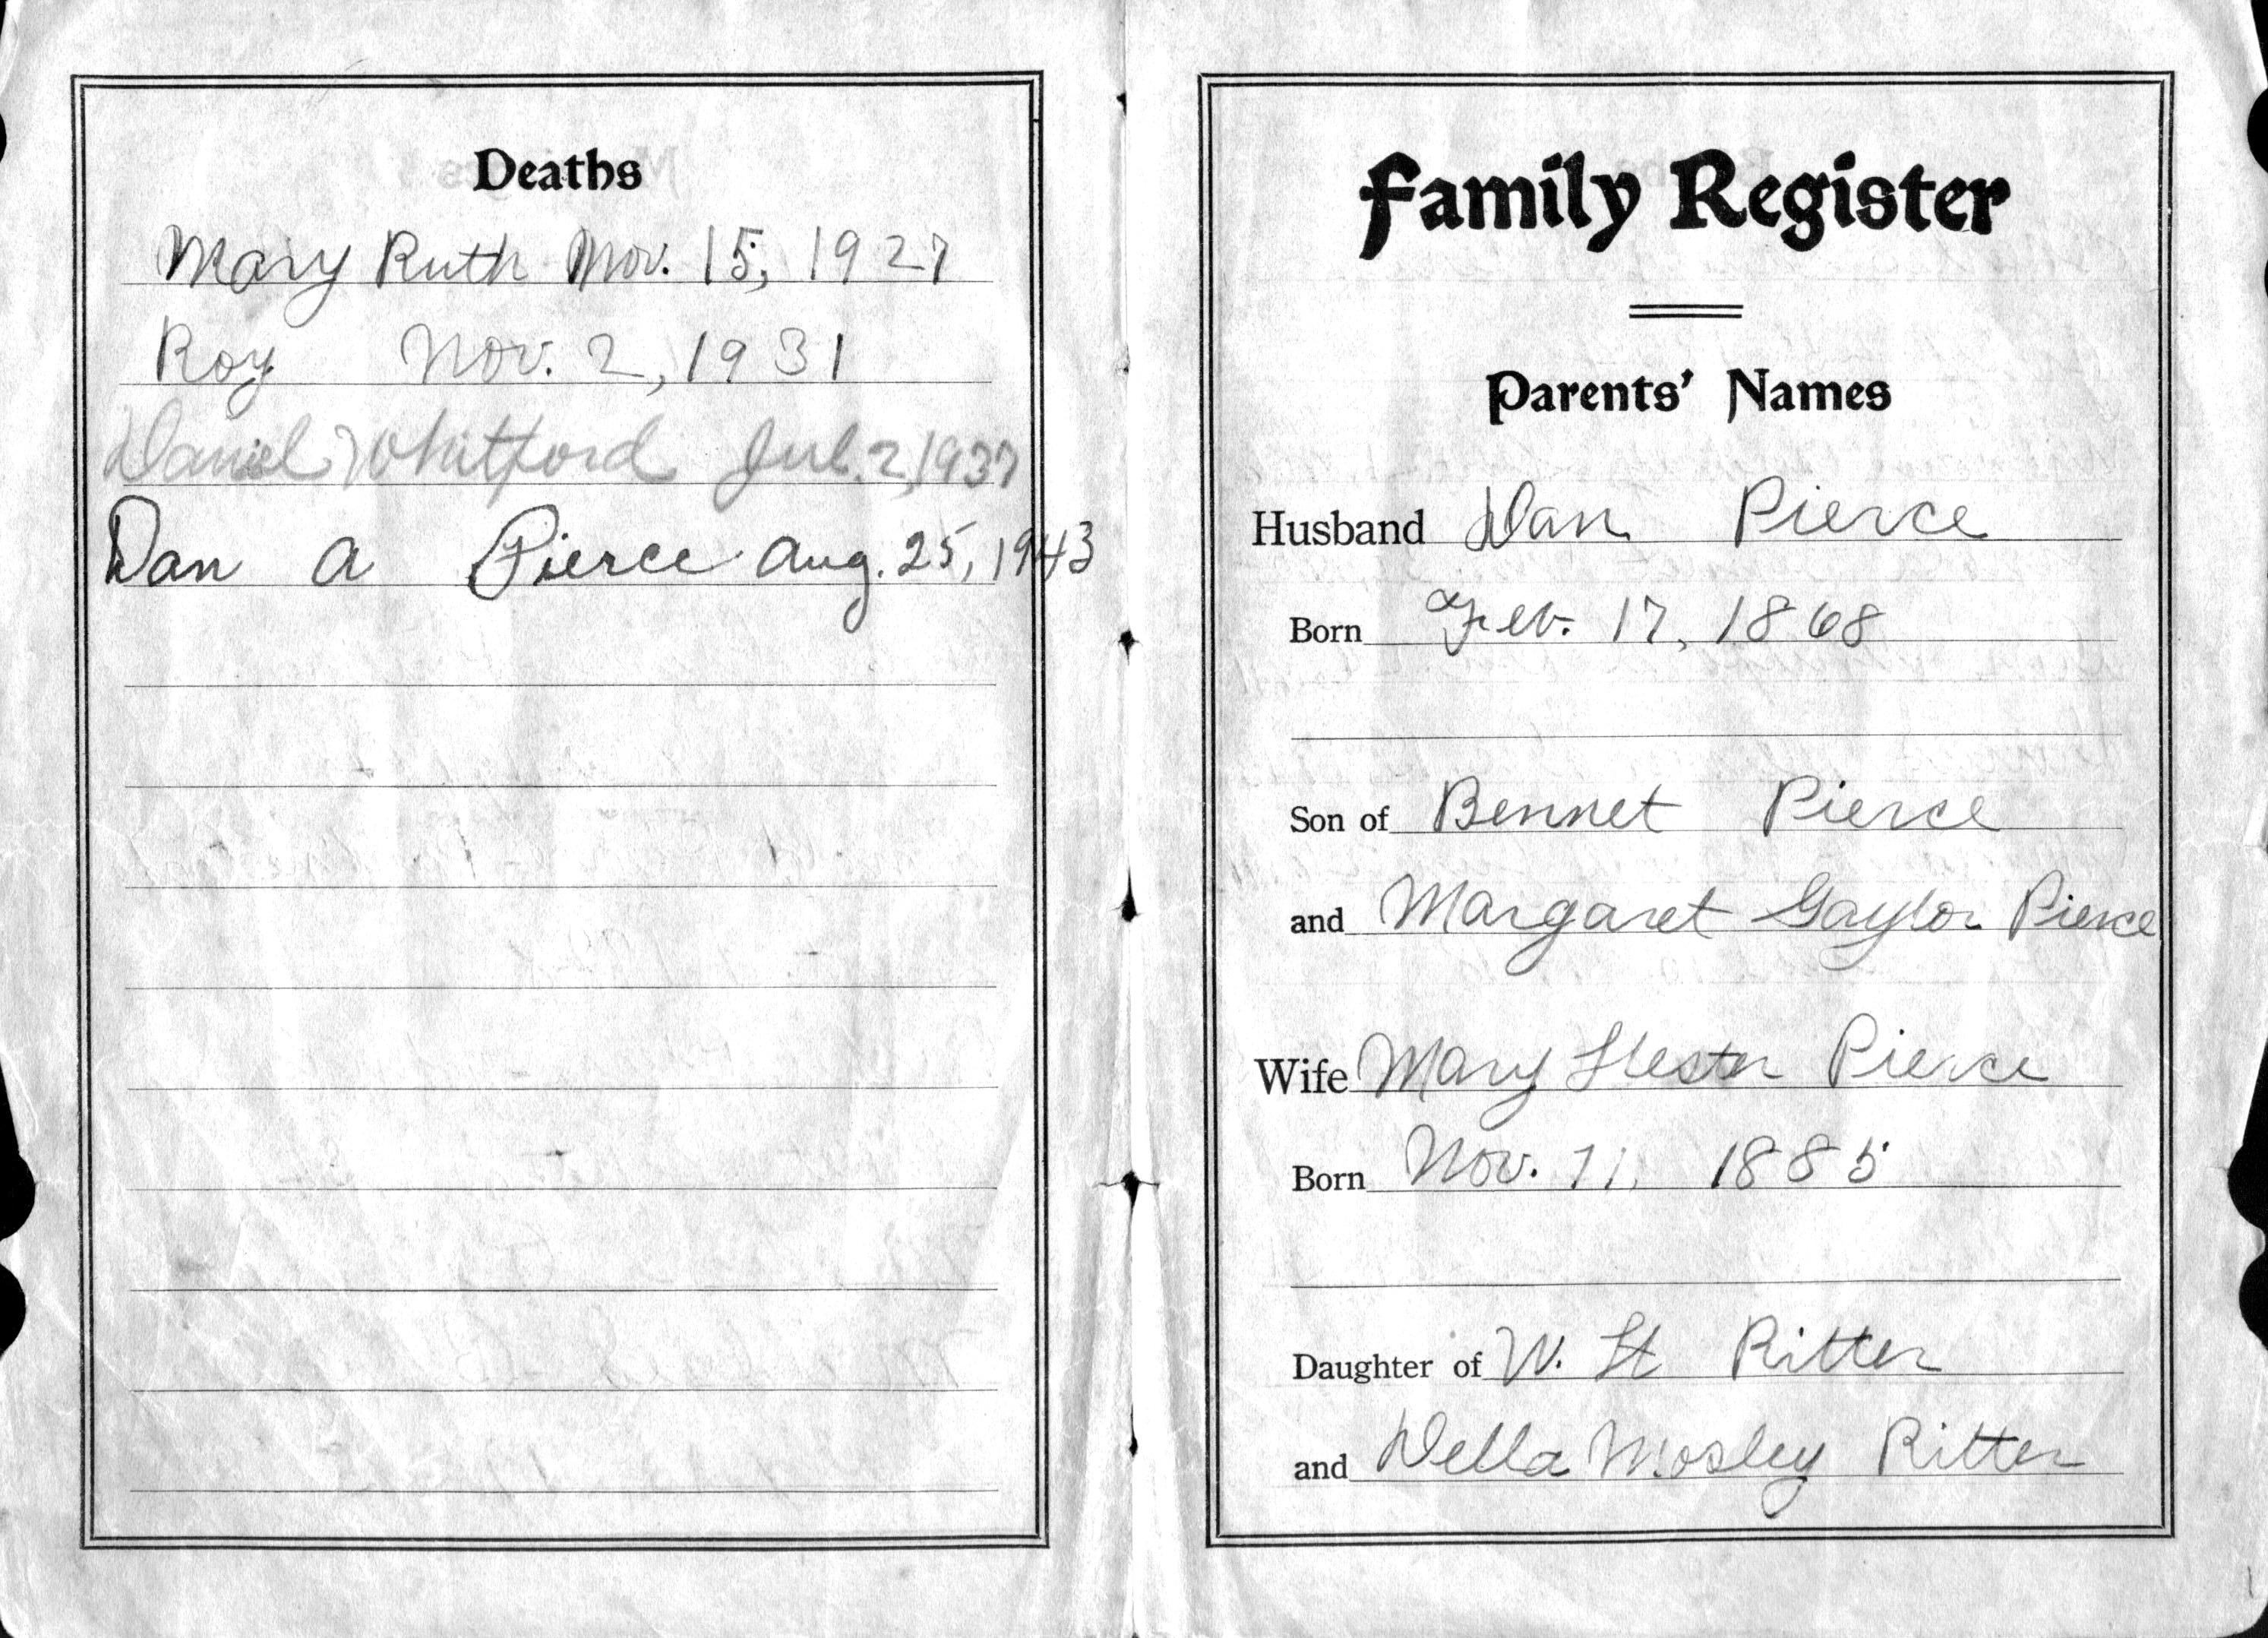 Deaths
Mary Ruth Nov. 15, 1927
Roy Nov. 2, 1931
Daniel Whitford Jul. 2, 1937
Dan A Pierce Aug. 25, 1943
Family Register
Parents' Names
Husband Dan Pierce
Born Feb. 17, 1868
Son of Bennet Pierce
and Margaret Gaylor Pierce
Wife Mary Hester Pierce
Born Nov. 11, 1885
Daughter of W. H Ritter
and Della Mosley Ritter